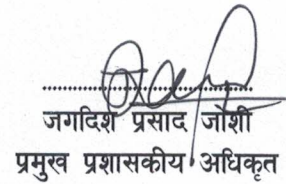 जगदिश प्रसाद जोशी
प्रमुख प्रशासकीय अधिकृत